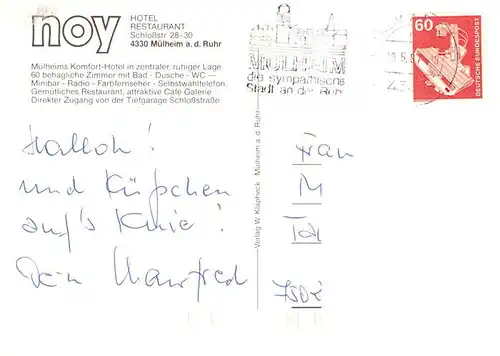 noy
HOTEL
RESTAURANT
Schloßstr 28-30
4330 Mülheim a. d. Ruhr
Mülheims Komfort-Hotel in zentraler, ruhiger Lage
60 behagliche Zimmer mit Bad - Dusche - WC —
Minibar - Radio - Farbfernseher - Selbstwahltelefon
Gemütliches Restaurant, attraktive Café Galerie
Direkter Zugang von der Tiefgarage Schloßstraße
MÜLHEIM
die sympathische
Stadt an der Ruhr
60
DEUTSCHE BUNDESPOST
Halloh!
und Küßchen
auf's Knie!
Dein Manfred
Verlag W. Klapheck · Mülheim a. d. Ruhr
Frau
M